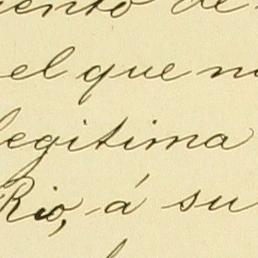 ento de
el que no
legitima
Rio, á su